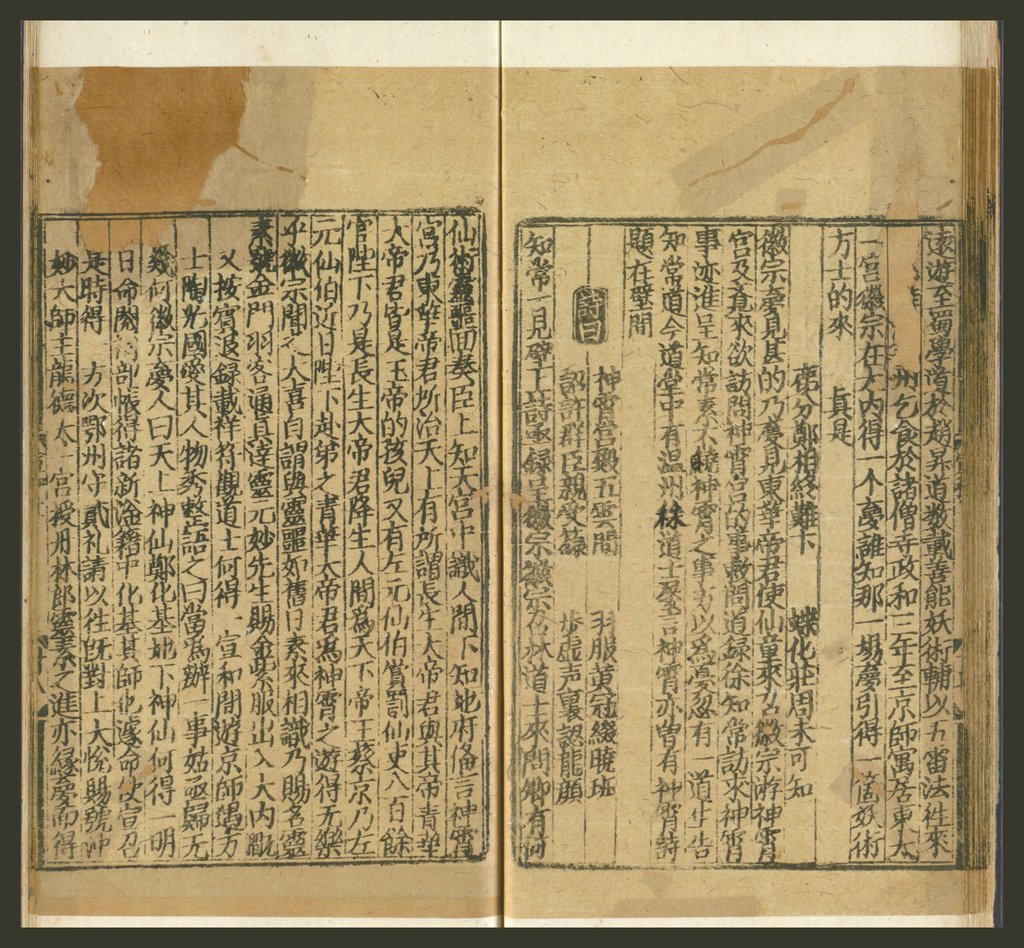 遠遊至蜀學道於趙昇道数載善能妖術輔以五雷法徃來
州乞食於諸僧寺政和三年至京師寓居東太
一宮徽宗在大内得一个夢誰知那一場夢引得一個妖術
方士的來　真是
鹿分鄭相終難卞　蝶化莊周未可知
徽宗夢見甚的乃夢見東華帝君使仙童來召徽宗游神霄
宮及覔來欲訪問神霄宮的事敕問道録徐知常訪求神霄
事亦進呈知常素不曉神霄之事方以爲憂忽有一道士告
知常道今道堂中有温州林道士屢言神霄亦曽有神霄詩
題在壁間
神霄宮殿五雲間　羽服黄冠綴曉班
詩曰
詔許群臣親受籙　步虛声裏認龍顔
知常一見壁上詩亟録呈徽宗徽宗召林道士來問卿有何
仙術靈噩回奏臣上知天宮中識人間下知地府俻言神霄
宮乃東華帝君所治天上有所謂長生大帝君與其帝青華
大帝君皆是玉帝的孩兒又有左元仙伯賞罰仙吏八百餘
官陛下乃是長生大帝君降生人間爲天下帝王蔡京乃左
元仙伯近日陛下赴弟之青華大帝君爲神霄之遊得无樂
乎徽宗聞之大喜自謂與靈噩如舊日素來相識乃賜名靈
素號金門羽客通真達靈元妙先生賜金紫服出入大内
又按賔退録載祥符觀道士何得一宣和間遊京師遇方
士陶光國愛其人物秀整語之曰當爲辦一事姑亟歸无
幾何徽宗夢人曰天上神仙鄭化基地下神仙何得一明
日命閱祠部帳得諸新淦籍中化基其師也遽命使宣召
是時得一方次鄂州守貳礼請以徃旣對上大悅賜號冲
妙大師主龍德太一宮授丹林郎靈素之進亦緣夢而得